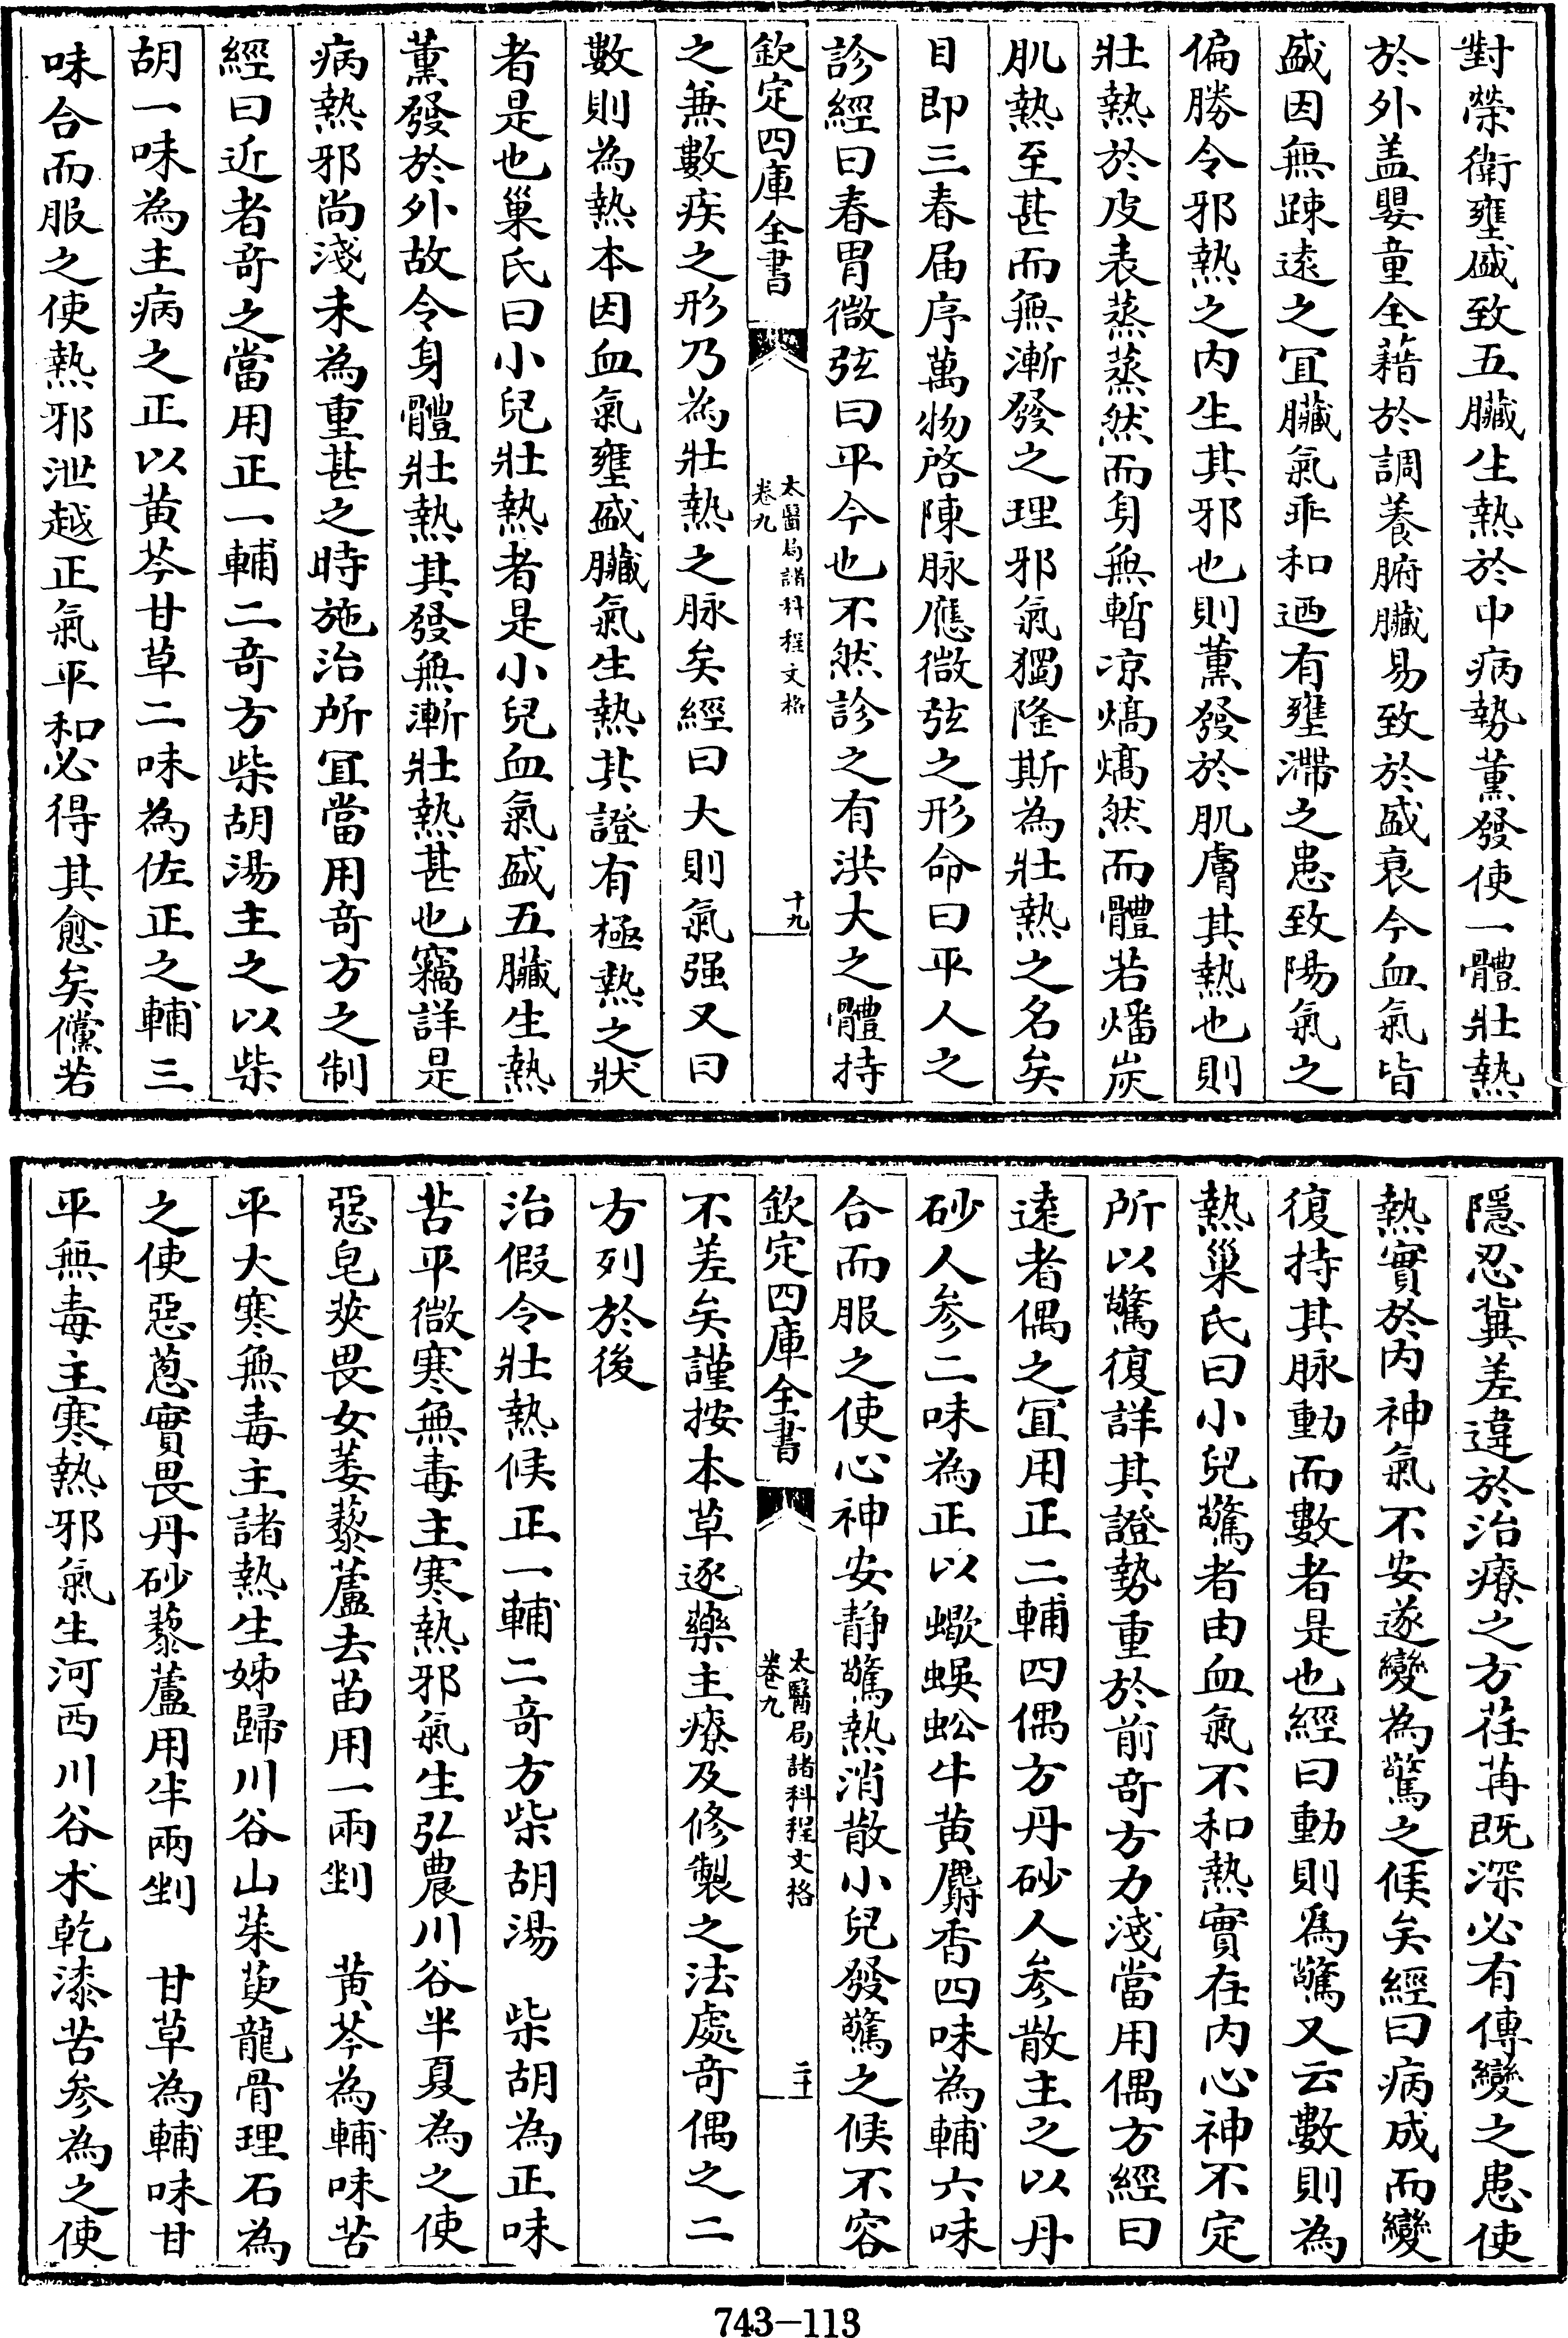 對榮衛壅盛致五臟生熱於中病勢薰發使一體壯熱
於外盖嬰童全藉於調養腑臟易致於盛衰今血氣皆
盛因無踈逺之宜臟氣乖和迺有壅滯之患致陽氣之
偏勝令邪熱之内生其邪也則薰發於肌膚其熱也則
壯熱於皮表蒸蒸然而身無暫凉熇熇然而體若燔炭
肌熱至甚而無漸發之理邪氣獨隆斯為壯熱之名矣
目即三春届序萬物啓陳脉應微弦之形命曰平人之
診經曰春胃微弦曰平今也不然診之有洪大之體持
欽定四庫全書
太醫局諸科程文格
卷九
十九
之兼數疾之形乃為壯熱之脉矣經曰大則氣强又曰
數則為熱本因血氣壅盛臟氣生熱其證有極熱之狀
者是也巢氏曰小兒壯熱者是小兒血氣盛五臟生熱
薰發於外故令身體壯熱其發無漸壯熱甚也竊詳是
病熱邪尚淺未為重甚之時施治所宜當用竒方之制
經曰近者竒之當用正一輔二竒方柴胡湯主之以柴
胡一味為主病之正以黄芩甘草二味為佐正之輔三
味合而服之使熱邪泄越正氣平和必得其愈矣儻若
隱忍冀差違於治療之方荏苒既深必有傳變之患使
熱實於内神氣不安遂變為驚之候矣經曰病成而變
復持其脉動而數者是也經曰動則爲驚又云數則為
熱巢氏曰小兒驚者由血氣不和熱實在内心神不定
所以驚復詳其證勢重於前竒方力淺當用偶方經曰
逺者偶之宜用正二輔四偶方丹砂人參散主之以丹
砂人參二味為正以蠍蜈蚣牛黄麝香四味為輔六味
合而服之使心神安静驚熱消散小兒發驚之候不容
欽定四庫全書
太醫局諸科程文格
卷九
二十
不差矣謹按本草逐藥主療及修製之法處竒偶之二
方列於後
治假令壯熱候正一輔二竒方柴胡湯　柴胡為正味
苦平微寒無毒主寒熱邪氣生弘農川谷半夏為之使
惡皂莢畏女萎藜蘆去苗用一兩剉　黄芩為輔味苦
平大寒無毒主諸熱生姊歸川谷山茱萸龍骨理石為
之使惡蔥實畏丹砂藜蘆用半兩剉　甘草為輔味甘
平無毒主寒熱邪氣生河西川谷术乾漆苦參為之使
743－113